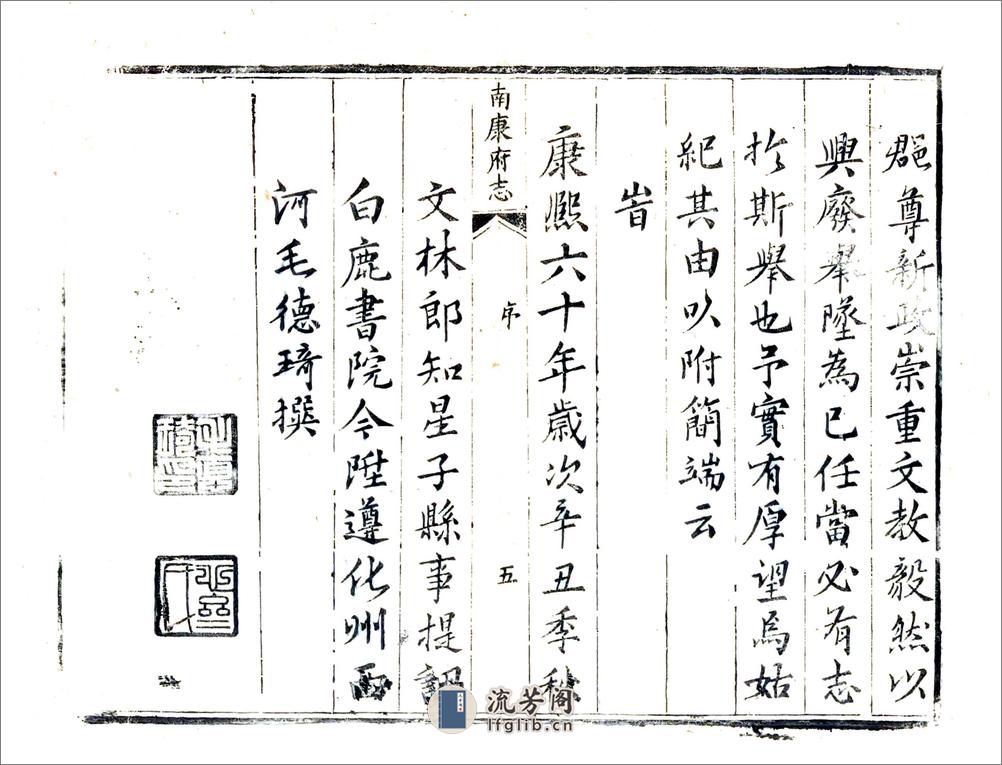 郡尊新政崇重文教毅然以
興廢舉墜為己任當必有志
扵斯舉也予實有厚望焉姑
紀其由以附簡端云
旹
康熙六十年歲次辛丑季秋
南康府志
序
五
文林郎知星子縣事提調
白鹿書院今陞遵化州西
河毛德琦撰
流芳阁
lfglib.cn